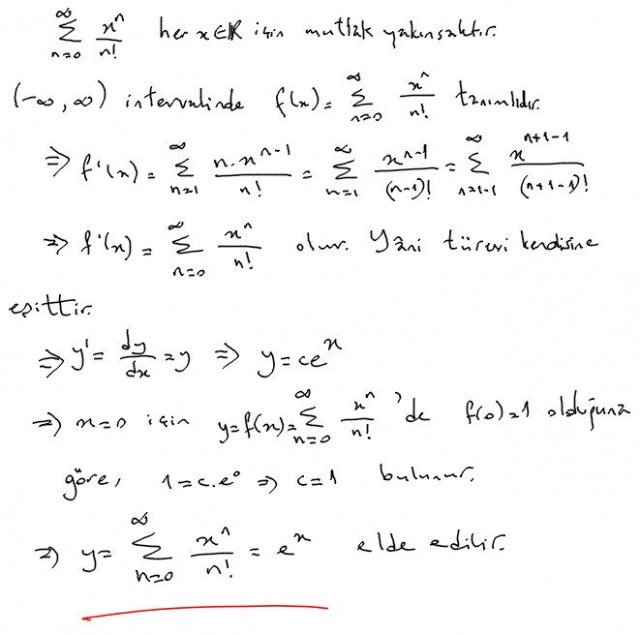 ∑_{n=0}^{∞} x^n/n! her x∈ℝ için mutlak yakınsaktır.
(-∞, ∞) intervalinde f(x) = ∑_{n=0}^{∞} x^n/n! tanımlıdır.
⇒ f'(x) = ∑_{n=1}^{∞} n.x^{n-1}/n! = ∑_{n=1}^{∞} x^{n-1}/(n-1)! = ∑_{n=1-1}^{∞} x^{n+1-1}/(n+1-1)!
⇒ f'(x) = ∑_{n=0}^{∞} x^n/n! olur. Yâni türevi kendisine
eşittir.
⇒ y' = dy/dx = y ⇒ y = ce^x
⇒ x=0 için y=f(x)=∑_{n=0}^{∞} x^n/n! 'de f(0)=1 olduğuna
göre, 1=c.e^0 ⇒ c=1 bulunur.
⇒ y = ∑_{n=0}^{∞} x^n/n! = e^x elde edilir.